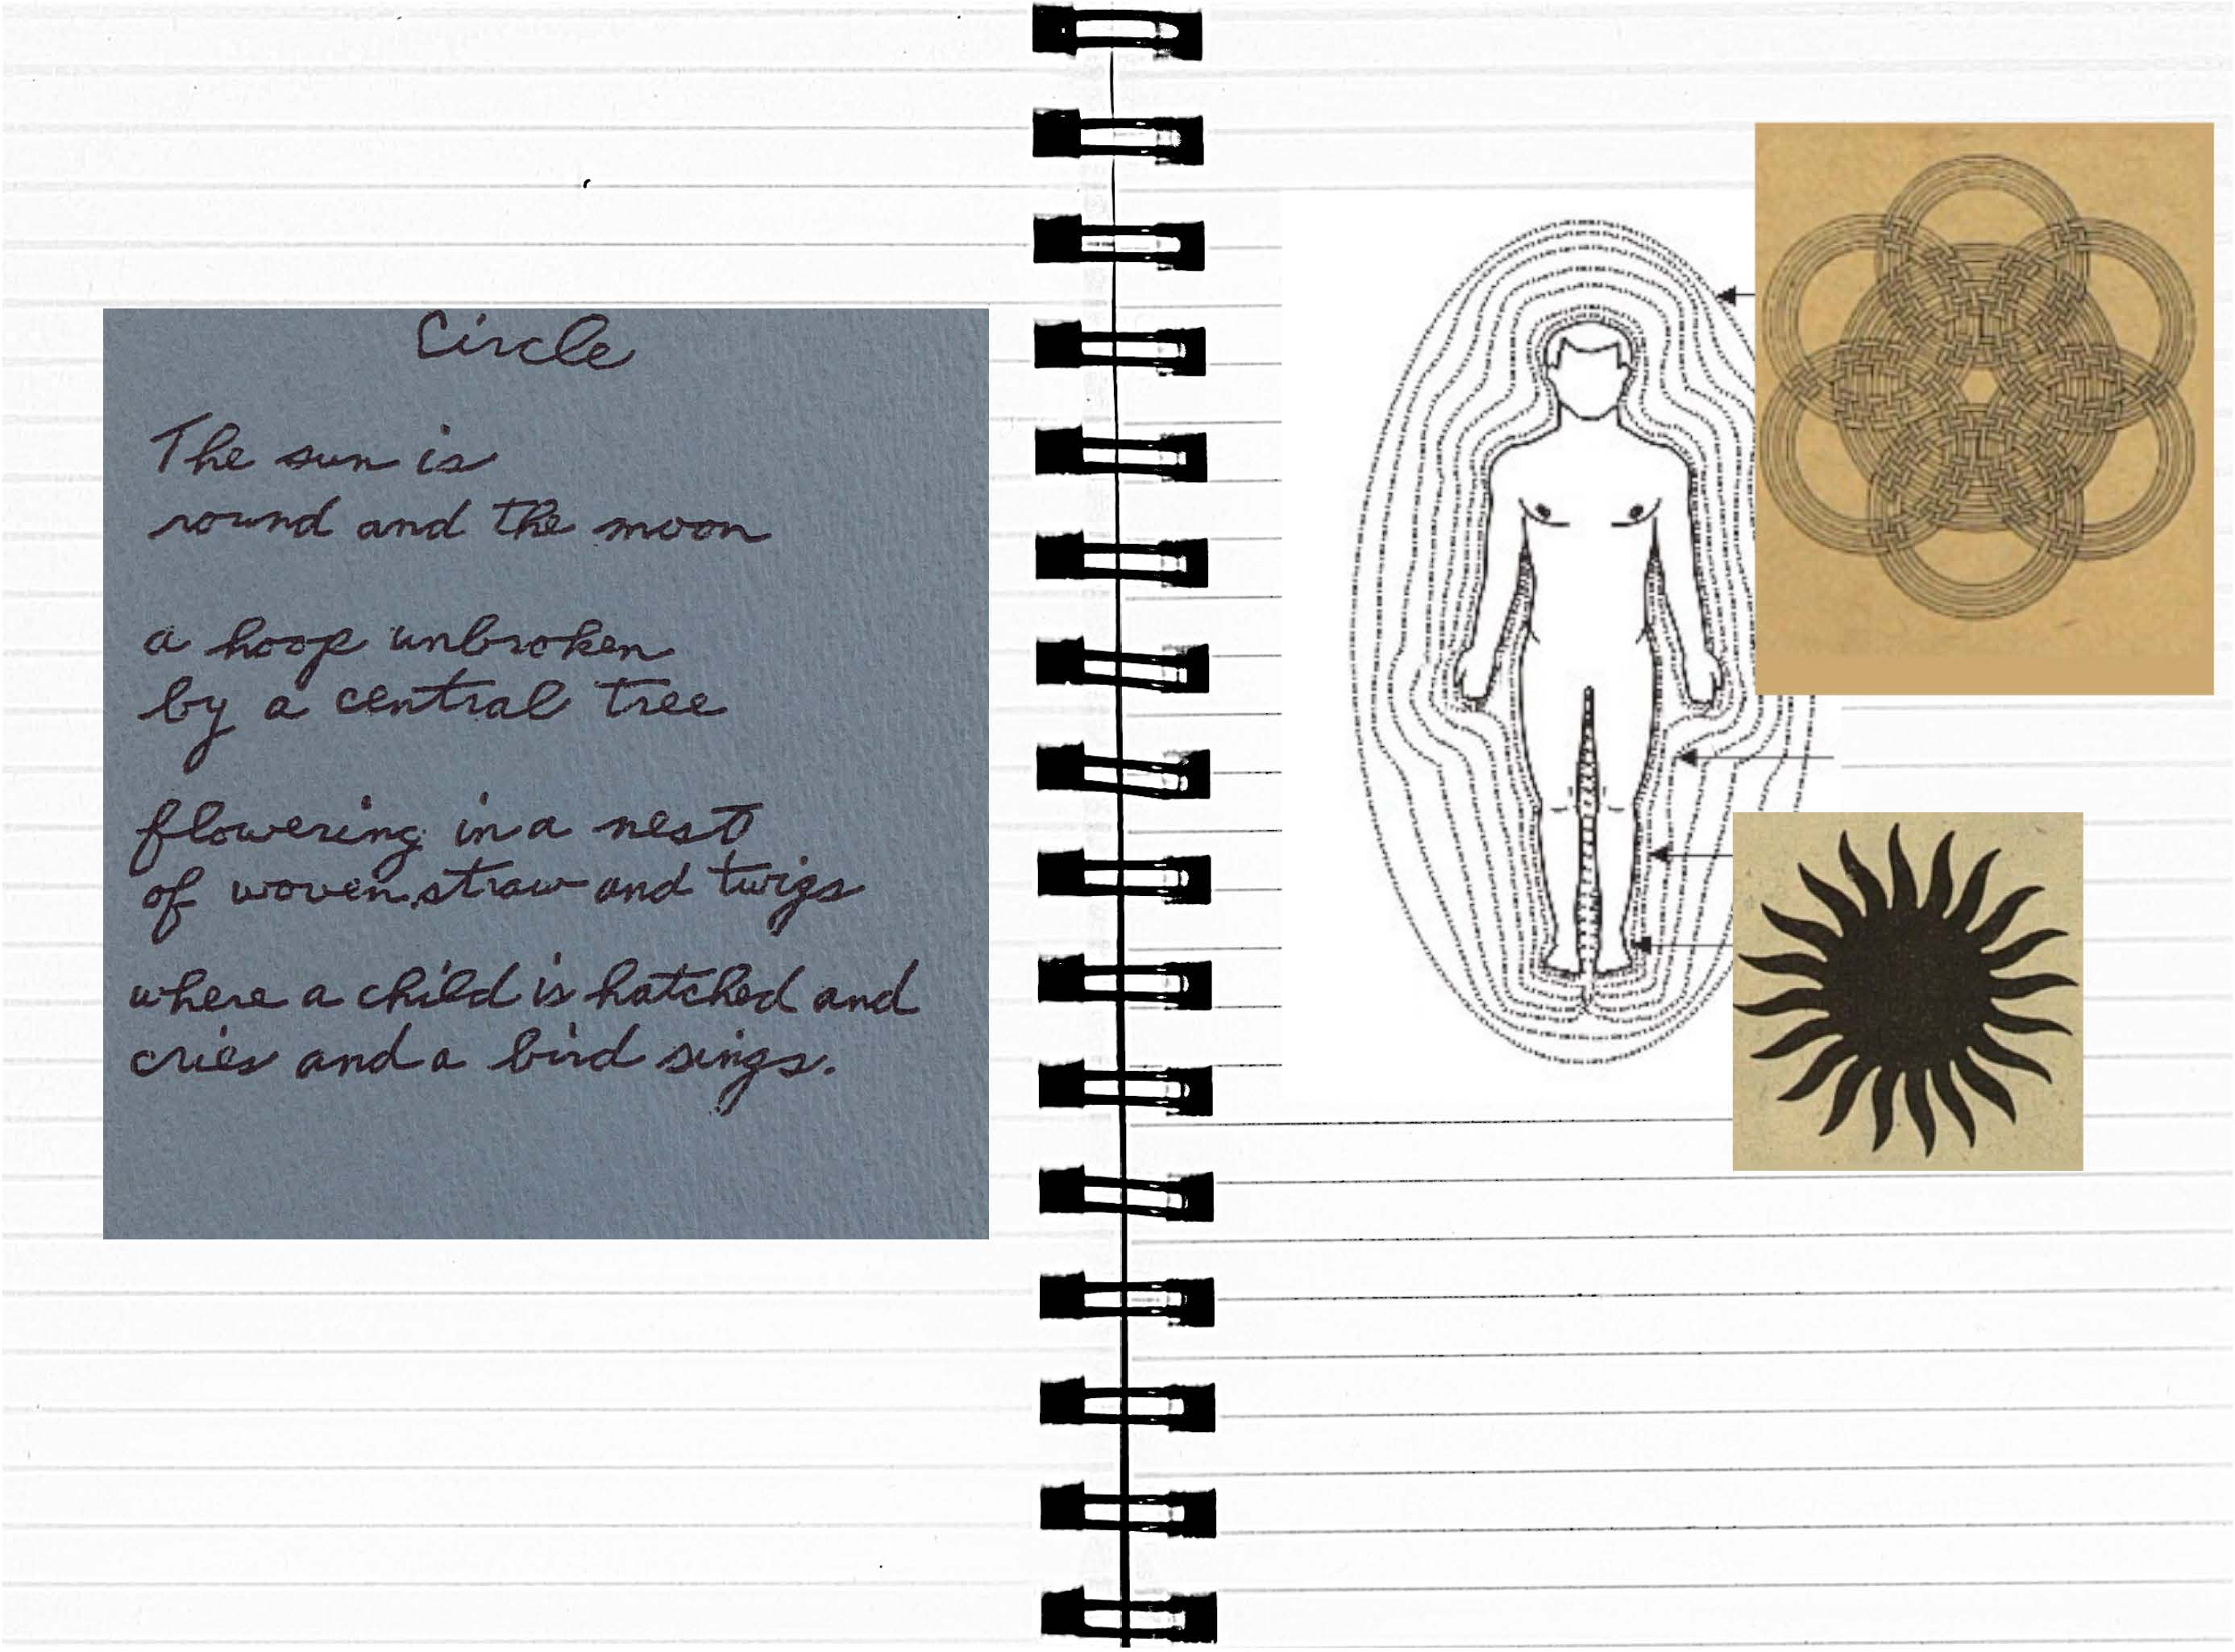 Circle
The sun is
round and the moon
a hoop unbroken
by a central tree
flowering in a nest
of woven straw and twigs
where a child is hatched and
cries and a bird sings.